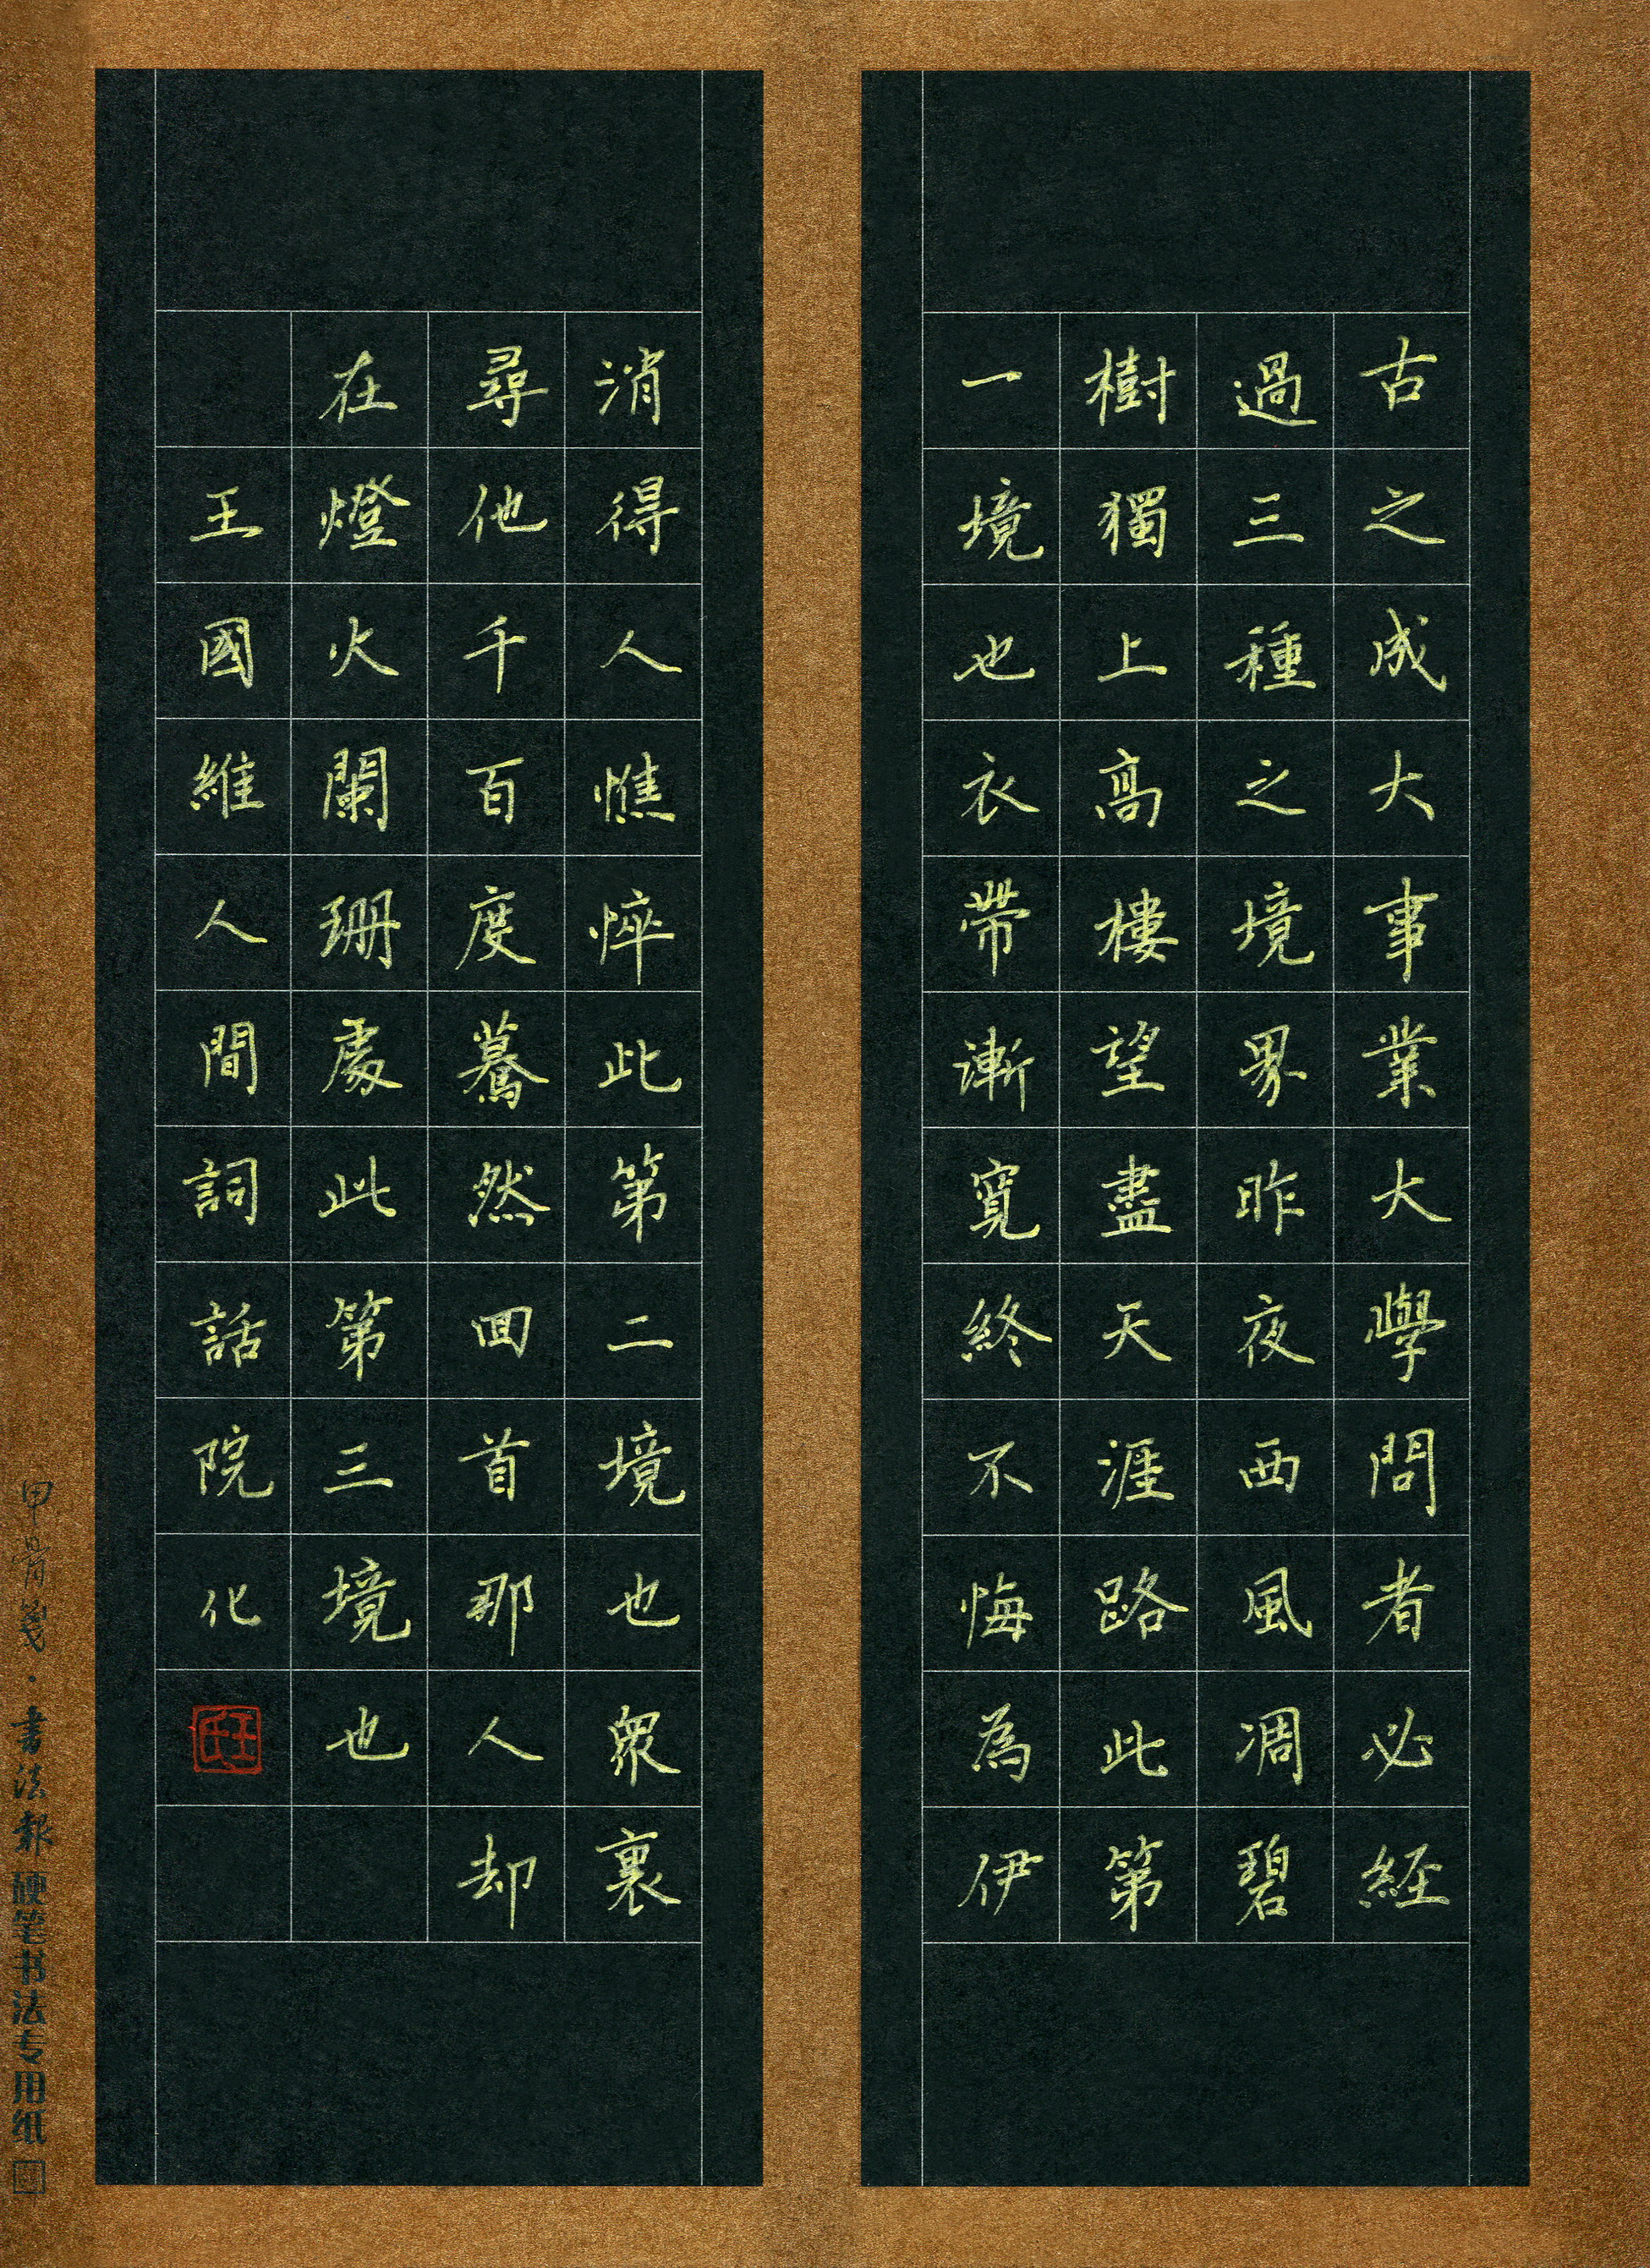 古之成大事業大學問者必經
過三種之境界昨夜西風凋碧
樹獨上高樓望盡天涯路此第
一境也衣帶漸寬終不悔為伊
消得人憔悴此第二境也眾裏
尋他千百度驀然回首那人却
在燈火闌珊處此第三境也
王國維人間詞話院化
甲骨箋·書法報硬笔书法专用纸